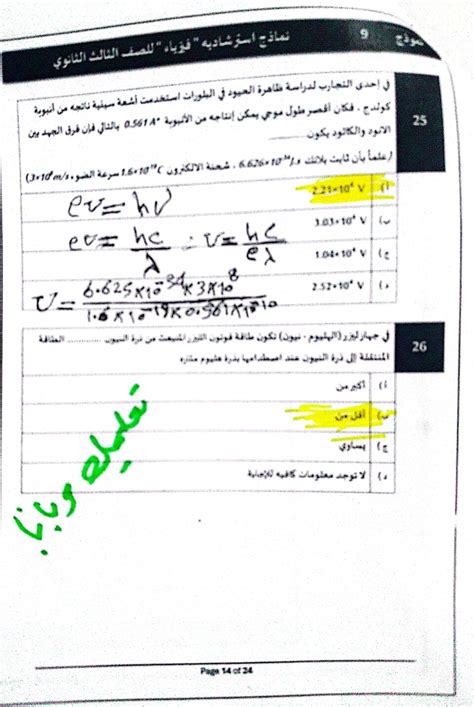 نموذج 9 نماذج استرشاديه "فيزياء" للصف الثالث الثانوي
25
في إحدى التجارب لدراسة ظاهرة الحيود في البلورات استخدمت أشعة سينية ناتجه من أنبوبة
كولدج . فكان أقصر طول موجي يمكن إنتاجه من الأنبوبة 0.561 A° بالتالي فإن فرق الجهد بين
الانود والكاثود يكون
(علماً بأن ثابت بلانك 6.626×10⁻³⁴ J.s ، شحنة الالكترون 1.6×10⁻¹⁹ C سرعة الضوء 3×10⁸ m/s)
أ) 2.21×10⁴ V
ب) 3.03×10⁴ V
ج) 1.04×10⁴ V
د) 2.52×10⁴ V
eν = hν
eν = hc/λ : ν = hc/eλ
ν = 6.625×10⁻³⁴×3×10⁸ / 1.6×10⁻¹⁹×0.561×10⁻¹⁰
26
في جهاز ليزر (الهليوم - نيون) تكون طاقة فوتون الليزر المنبعث من ذرة النيون ............ الطاقة
المنتقلة إلى ذرة النيون عند اصطدامها بذرة هليوم مثاره
أ) أكبر من
ب) أقل من
ج) يساوي
د) لا توجد معلومات كافيه للإجابة
Page 14 of 24